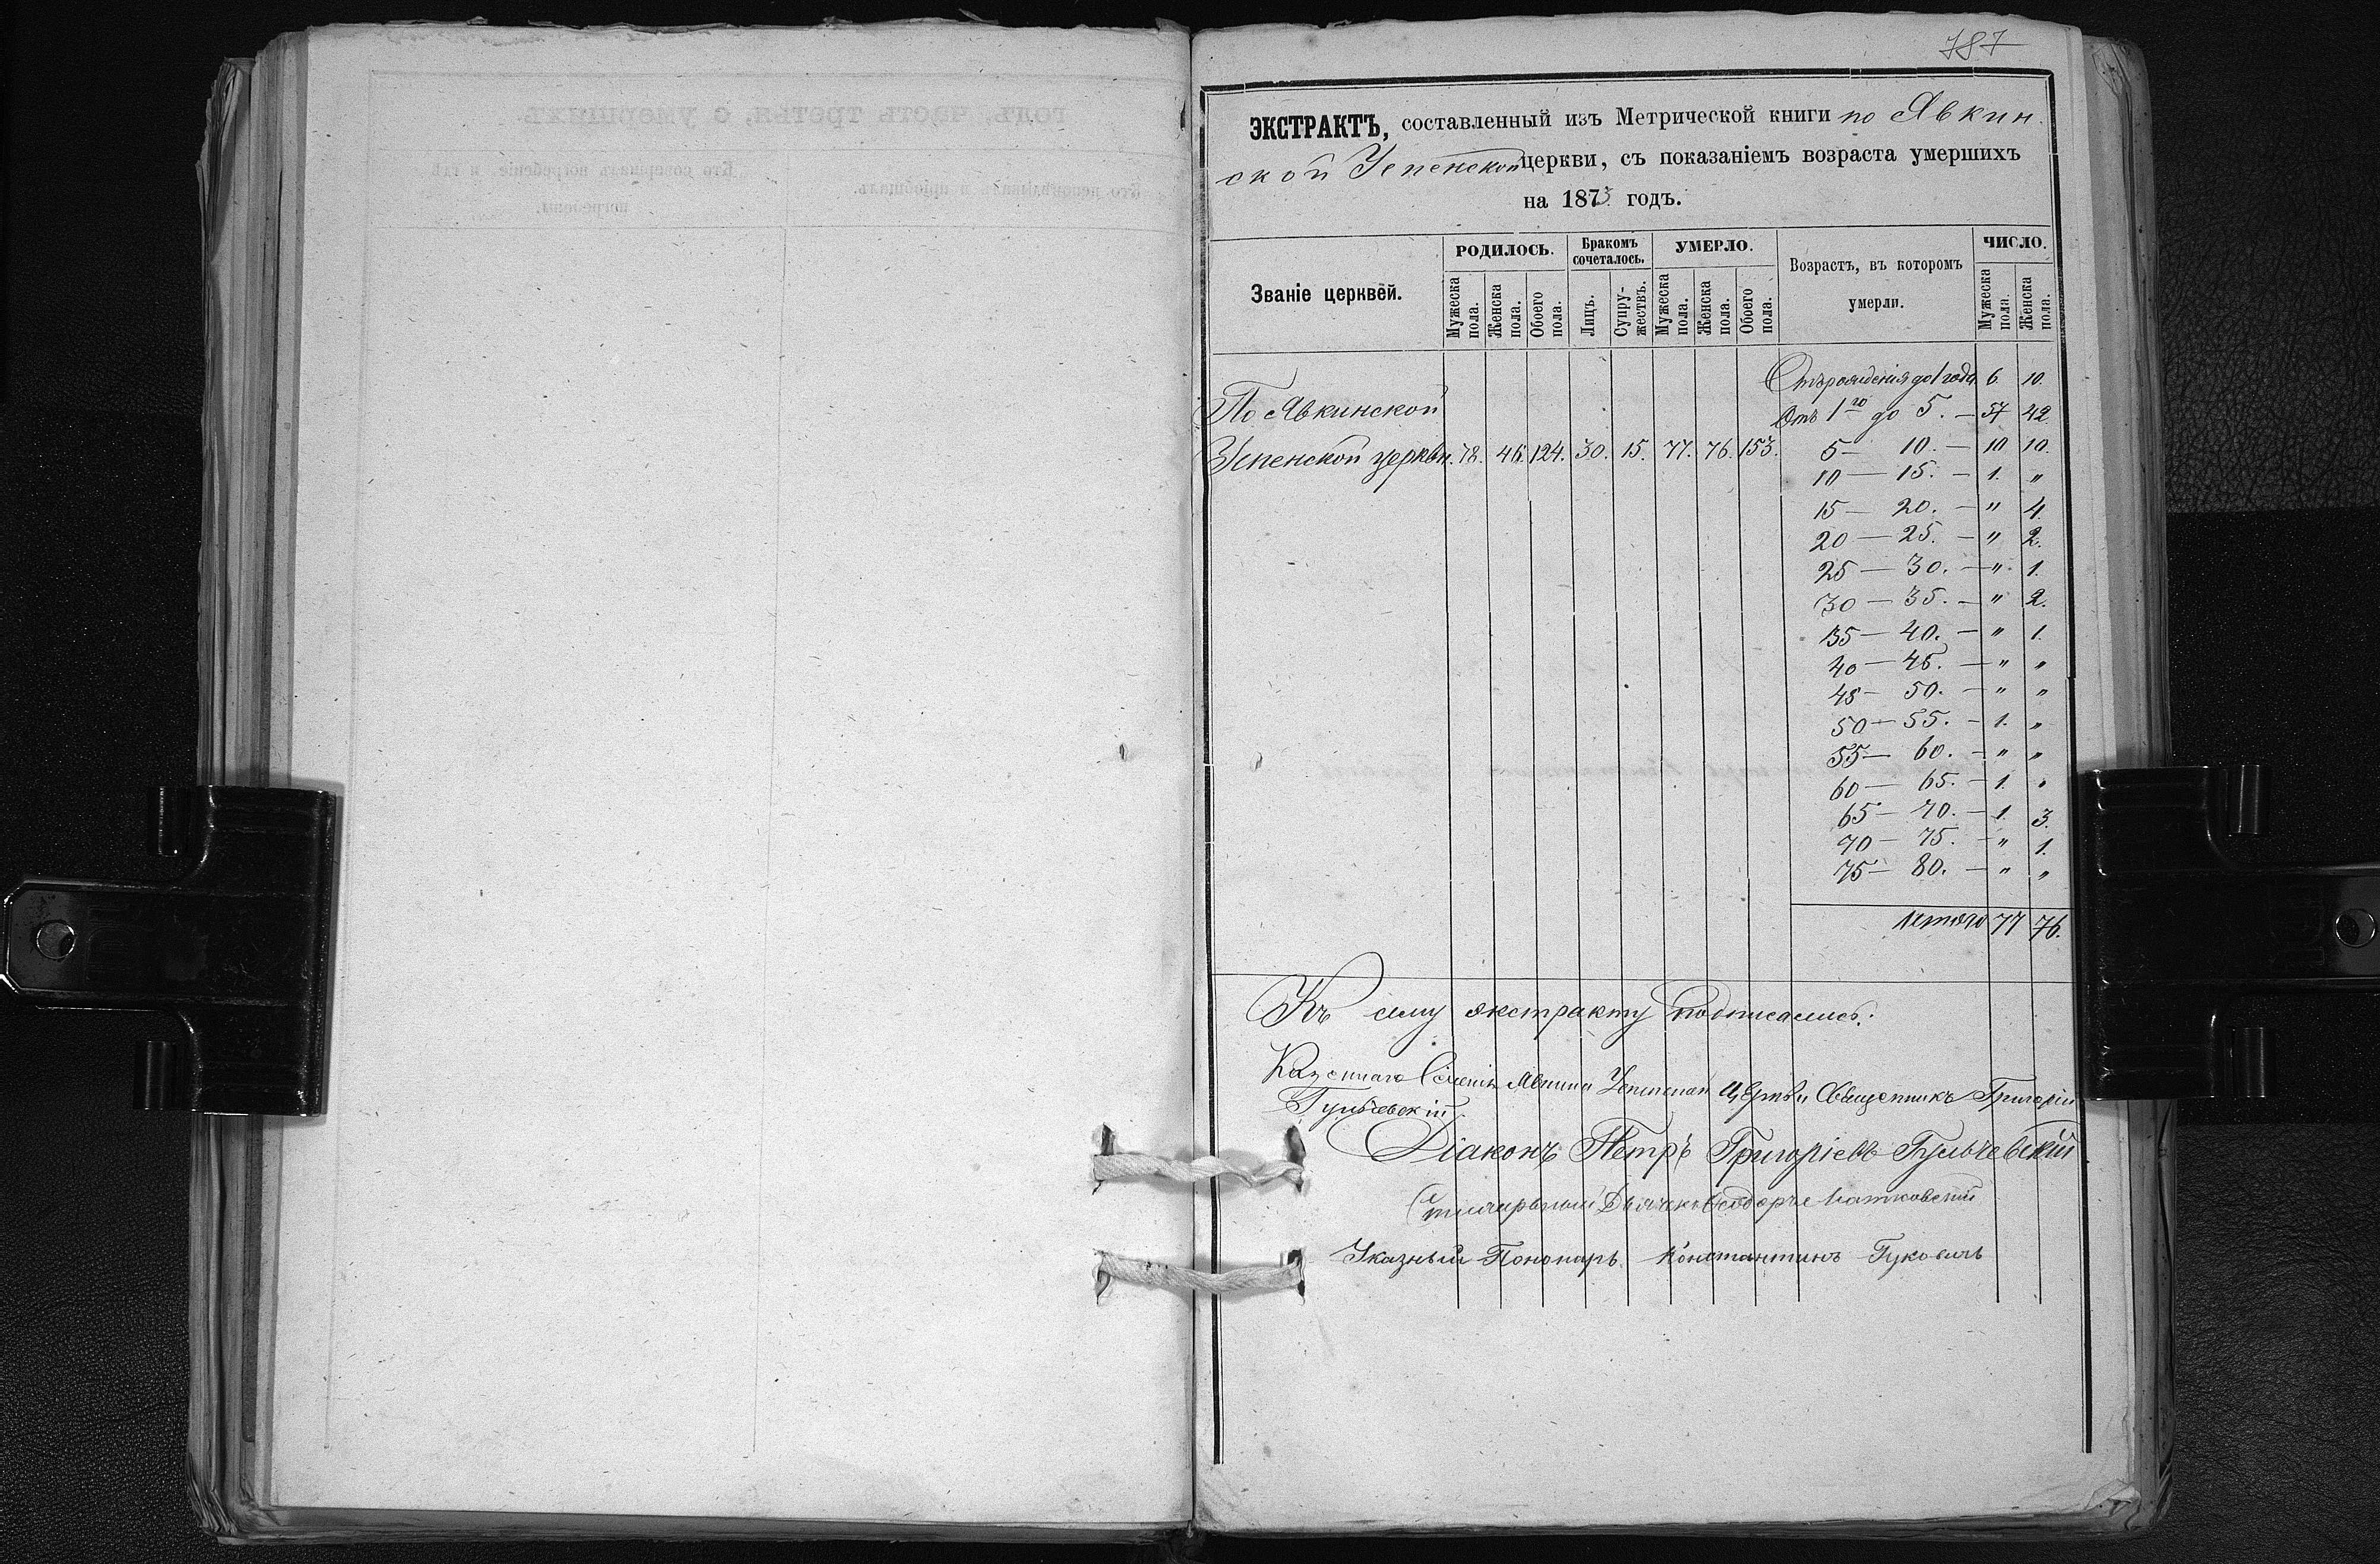 787
ЭКСТРАКТЪ, составленный изъ Метрической книги по Явкин
ской Успенской церкви, съ показаніемъ возраста умершихъ
на 1873 годъ.
Званіе церквей.
РОДИЛОСЬ.
Мужеска пола.
Женска пола.
Обоего пола.
Бракомъ сочеталось.
Лицъ.
Супружествъ.
УМЕРЛО.
Мужеска пола.
Женска пола.
Обоего пола.
Возрастъ, въ которомъ
умерли.
ЧИСЛО.
Мужеска пола.
Женска пола.
Отъ рожденія до 1 года 6. 10.
По Явкинской
Отъ 1го до 5. — 57 42
Успенской церкви. 78. 46. 124. 30. 15. 77. 76. 153. 5 — 10. — 10 10.
10 — 15. — 1. "
15 — 20. — " 4.
20 — 25. — " 2.
25 — 30. — " 1.
30 — 35. — " 2.
35 — 40. — " 1.
40 — 45. — " "
45 — 50. — " "
50 — 55. — 1. "
55 — 60. — " "
60 — 65. — 1. "
65 — 70. — 1. 3.
70 — 75. — " 1.
75 — 80. — " "
Итого 77 76.
Къ сему экстракту подписались:
Казеннаго Селенія Явкина Успенской Церкви Священникъ Григорій
Гульчевскій
Діаконъ Петръ Григоріевъ Гульчевскій
Дьячекъ
Указный Пономарь Константинъ Гуковичъ
годъ, часть третья, о умершихъ
Кто совершалъ погребеніе и гдѣ
погребены.
Кто исповѣдывалъ и пріобщалъ.